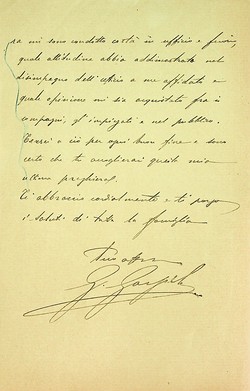 ra mi sono condotto costà in ufficio e fuori,
quale attitudine abbia addimostrata nel
disimpegno dell'ufficio a me affidato e
quale opinione mi sia acquistata fra i
compagni, gl'impiegati e nel pubblico.
a ciò per ogni buon fine e sono
certo che tu accoglierai questa mia
ultima preghiera.
Ti abbraccio cordialmente e ti porgo
i saluti di tutta la famiglia
Tuo
G.